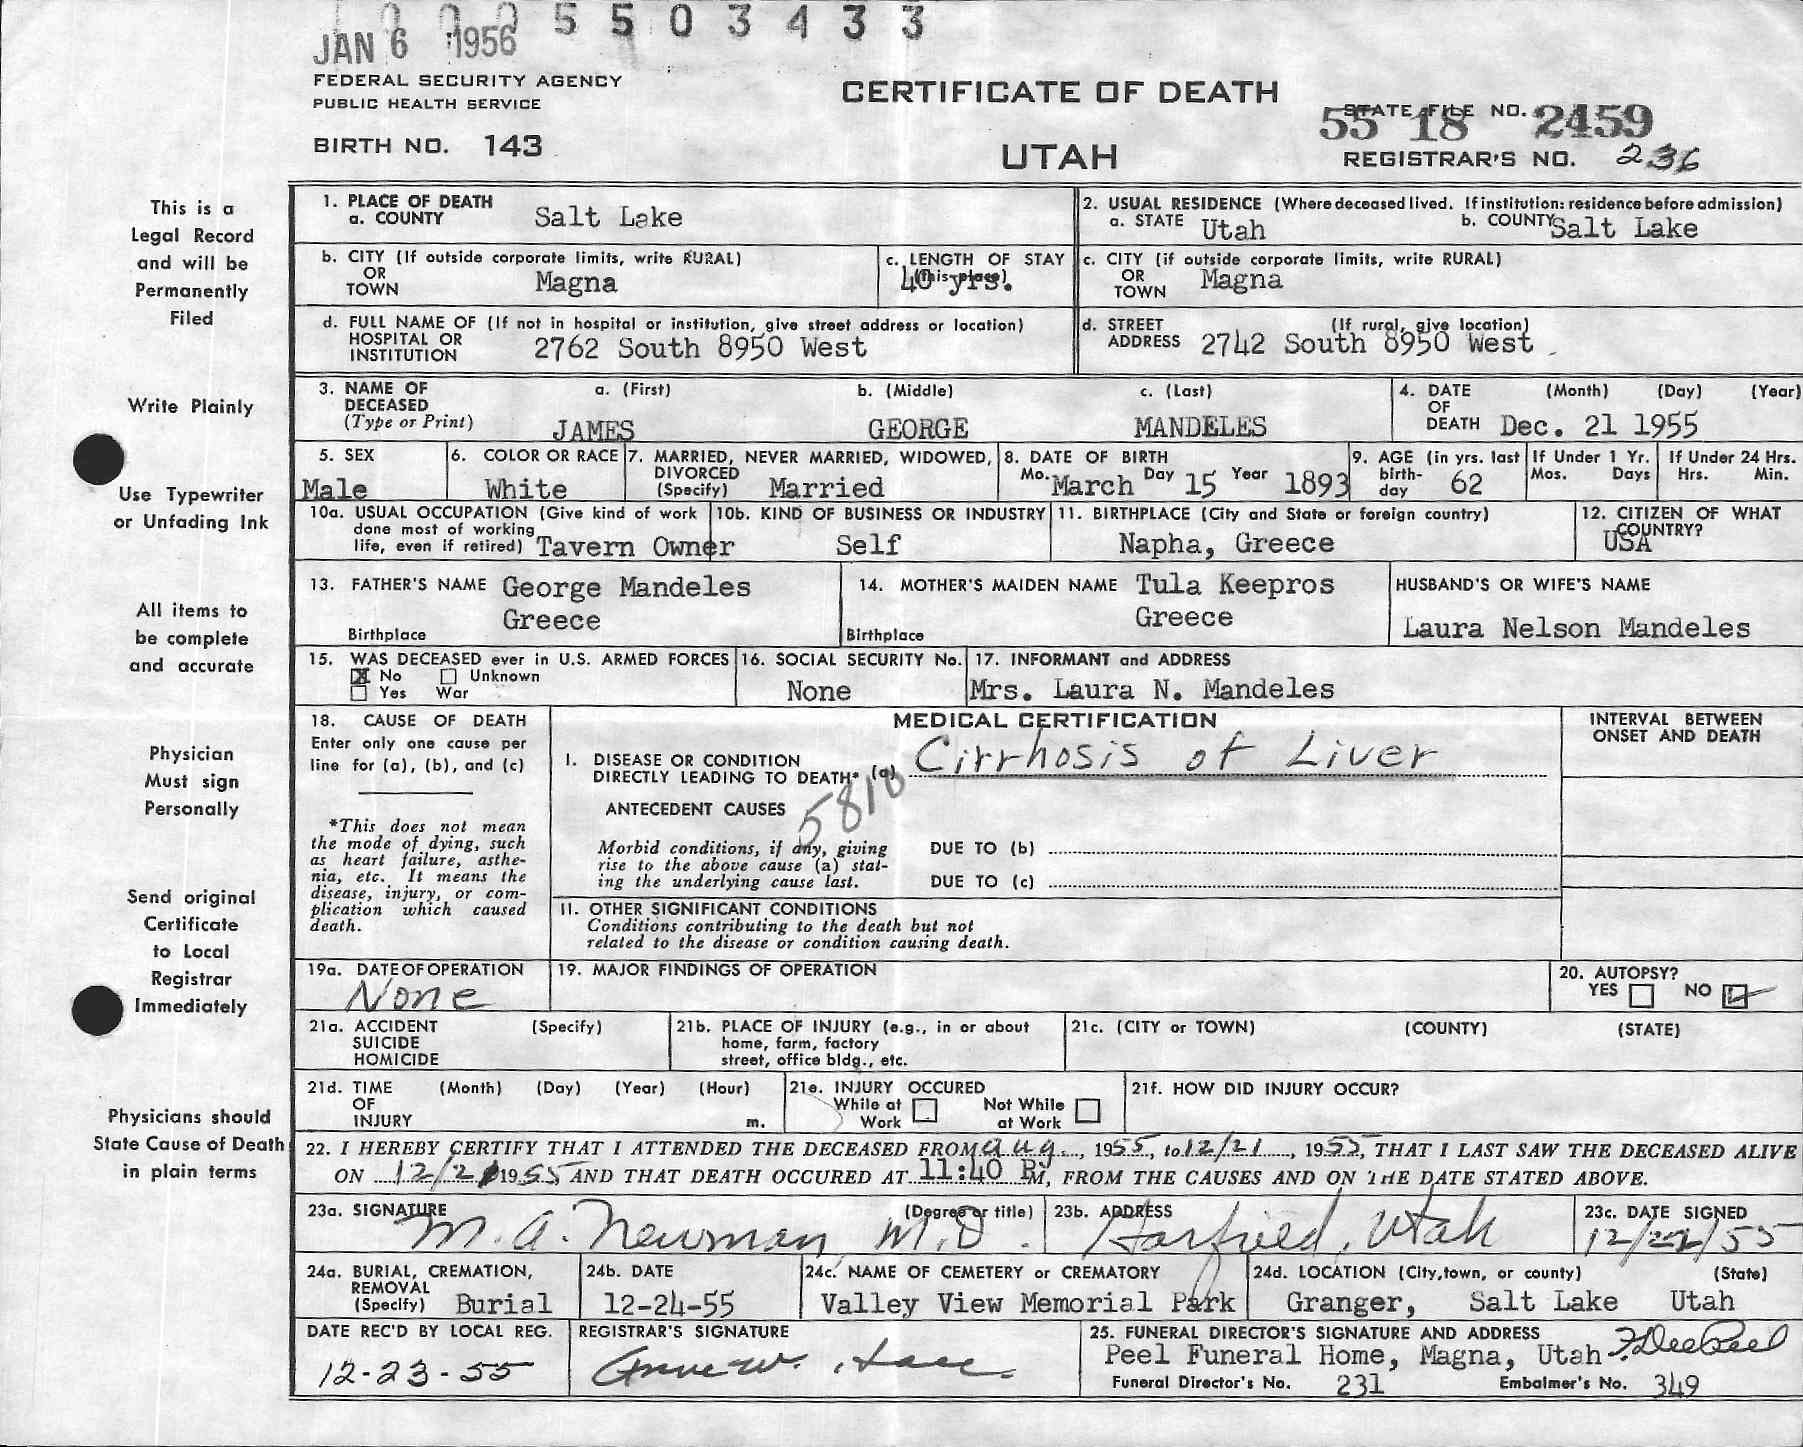 0005503433
JAN 6 1956
FEDERAL SECURITY AGENCY
PUBLIC HEALTH SERVICE
BIRTH NO. 143
CERTIFICATE OF DEATH
UTAH
STATE FILE NO. 55 18 2459
REGISTRAR'S NO. 236
This is a
Legal Record
and will be
Permanently
Filed
Write Plainly
Use Typewriter
or Unfading Ink
All items to
be complete
and accurate
Physician
Must sign
Personally
Send original
Certificate
to Local
Registrar
Immediately
Physicians should
State Cause of Death
in plain terms
1. PLACE OF DEATH
a. COUNTY Salt Lake
2. USUAL RESIDENCE (Where deceased lived. If institution: residence before admission)
a. STATE Utah b. COUNTY Salt Lake
b. CITY (If outside corporate limits, write RURAL)
OR
TOWN Magna
c. LENGTH OF STAY
(this place)
40 yrs.
c. CITY (if outside corporate limits, write RURAL)
OR
TOWN Magna
d. FULL NAME OF (If not in hospital or institution, give street address or location)
HOSPITAL OR
INSTITUTION 2762 South 8950 West
d. STREET (If rural, give location)
ADDRESS 2742 South 8950 West
3. NAME OF a. (First) b. (Middle) c. (Last)
DECEASED
(Type or Print) JAMES GEORGE MANDELES
4. DATE (Month) (Day) (Year)
OF
DEATH Dec. 21 1955
5. SEX
Male
6. COLOR OR RACE
White
7. MARRIED, NEVER MARRIED, WIDOWED,
DIVORCED
(Specify) Married
8. DATE OF BIRTH
Mo. March Day 15 Year 1893
9. AGE (in yrs. last
birth-
day 62
If Under 1 Yr.
Mos. Days
If Under 24 Hrs.
Hrs. Min.
10a. USUAL OCCUPATION (Give kind of work
done most of working
life, even if retired) Tavern Owner
10b. KIND OF BUSINESS OR INDUSTRY
Self
11. BIRTHPLACE (City and State or foreign country)
Napha, Greece
12. CITIZEN OF WHAT
COUNTRY?
USA
13. FATHER'S NAME George Mandeles
Birthplace Greece
14. MOTHER'S MAIDEN NAME Tula Keepros
Birthplace Greece
HUSBAND'S OR WIFE'S NAME
Laura Nelson Mandeles
15. WAS DECEASED ever in U.S. ARMED FORCES
X No Unknown
Yes War
16. SOCIAL SECURITY No.
None
17. INFORMANT and ADDRESS
Mrs. Laura N. Mandeles
18. CAUSE OF DEATH
Enter only one cause per
line for (a), (b), and (c)
*This does not mean
the mode of dying, such
as heart failure, asthe-
nia, etc. It means the
disease, injury, or com-
plication which caused
death.
MEDICAL CERTIFICATION
I. DISEASE OR CONDITION
DIRECTLY LEADING TO DEATH* (a) Cirrhosis of Liver
5810
ANTECEDENT CAUSES
Morbid conditions, if any, giving
rise to the above cause (a) stat-
ing the underlying cause last.
DUE TO (b)
DUE TO (c)
II. OTHER SIGNIFICANT CONDITIONS
Conditions contributing to the death but not
related to the disease or condition causing death.
INTERVAL BETWEEN
ONSET AND DEATH
19a. DATE OF OPERATION
None
19. MAJOR FINDINGS OF OPERATION
20. AUTOPSY?
YES NO
21a. ACCIDENT (Specify)
SUICIDE
HOMICIDE
21b. PLACE OF INJURY (e.g., in or about
home, farm, factory
street, office bldg., etc.
21c. (CITY or TOWN) (COUNTY) (STATE)
21d. TIME (Month) (Day) (Year) (Hour)
OF
INJURY m.
21e. INJURY OCCURED
While at Not While
Work at Work
21f. HOW DID INJURY OCCUR?
22. I HEREBY CERTIFY THAT I ATTENDED THE DECEASED FROM Aug, 1955, to 12/21, 1955, THAT I LAST SAW THE DECEASED ALIVE
ON 12/21 1955 AND THAT DEATH OCCURED AT 11:40 PM, FROM THE CAUSES AND ON THE DATE STATED ABOVE.
23a. SIGNATURE (Degree or title)
M. A. Newman M.D.
23b. ADDRESS
Garfield, Utah
23c. DATE SIGNED
12/22/55
24a. BURIAL, CREMATION,
REMOVAL
(Specify) Burial
24b. DATE
12-24-55
24c. NAME OF CEMETERY or CREMATORY
Valley View Memorial Park
24d. LOCATION (City, town, or county) (State)
Granger, Salt Lake Utah
DATE REC'D BY LOCAL REG.
12-23-55
REGISTRAR'S SIGNATURE
25. FUNERAL DIRECTOR'S SIGNATURE AND ADDRESS
Peel Funeral Home, Magna, Utah
Funeral Director's No. 231 Embalmer's No. 349